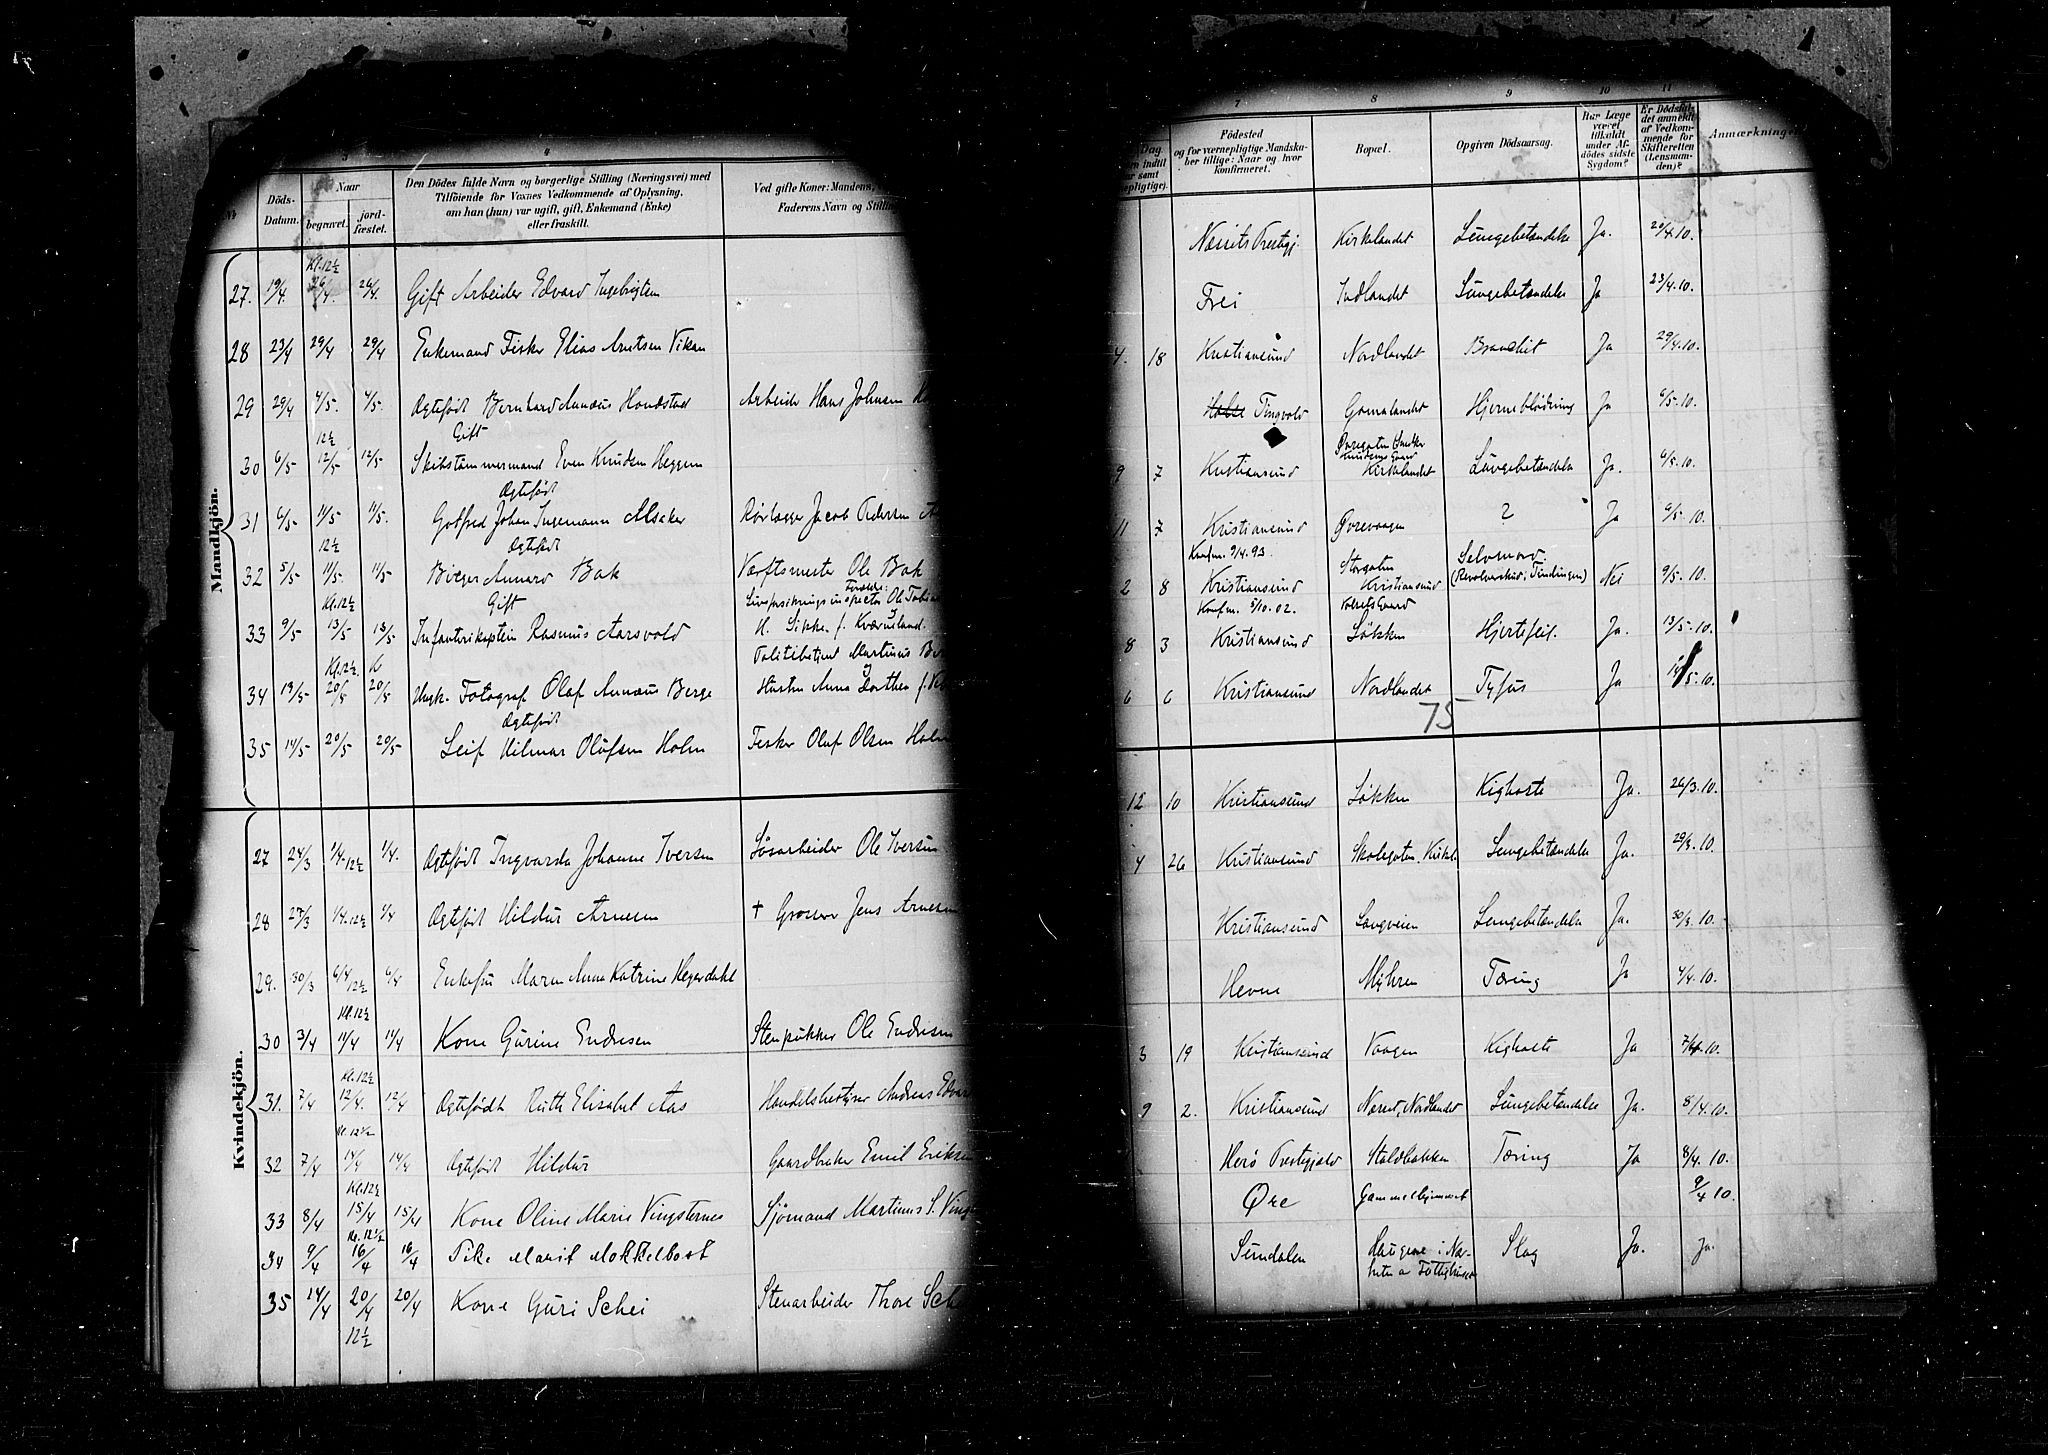 3
4
Nr.
Döds-
Datum.
Naar
begravet.
jord-
fæstet.
Den Dödes fulde Navn og borgerlige Stilling (Næringsvei) med
Tilföiende for Voxnes Vedkommende af Oplysning,
om han (hun) var ugift, gift, Enkemand (Enke)
eller fraskilt.
Ved gifte Koner: Mandens,
Faderens Navn og Stilling
Mandkjön.
Kl. 12½
27. 19/4 26/4. 26/4. Gift Arbeider Edvard Ingebrigtsen
28 23/4 29/4 29/4 Enkemand Fisker Elias Arntsen Vikan
29 29/4 4/5. 4/5. Ægtefødt Bernhard Annæus Hondstad Arbeider Hans Johnsen
12½ Gift
30 6/5 12/5 12/5 Skibstømmermand Even Knudsen Heggem
Ægtefødt
31 6/5 11/5 11/5. Gotfred Johan Ingemann Alsaker Rørlægger Jacob Pedersen
12½ Ægtefødt
32 5/5 11/5. 11/5 Birger Annard Bak Værftsmester Ole Bak
Kl. 12½ Gift Livsforsikringsinspectør Ole Tobias
33 9/5 13/5 13/5 Infanterikaptein Rasmus Aarsvold H. Sikke. f. Kværneland.
Kl. 12½ Politibetjent Martinus
34 13/5 20/5 20/5 Ungk. Fotograf Olaf Annæus Berge Hustru Anna Dorthea f.
Ægtefødt
35 14/5 20/5 20/5 Leif Hilmar Olufsen Holm Fisker Oluf Olsen Holm
Kvindekjön.
27 24/3 1/4. 12½ 1/4. Ægtefødt Ingvarda Johanne Iversen Løsarbeider Ole Iversen
28 27/3 1/4. 12½ 1/4 Ægtefødt Hildur Arnesen † Grosserer Jens Arnesen
29. 30/3 6/4 12½ 6/4 Enkefru Maren Anna Katrine Hegerdahl
Kl. 12½
30 3/4 11/4 11/4 Kone Gurine Endresen Stenpukker Ole Endresen
Kl. 12½
31. 7/4 12/4. 12/4 Ægtefødt Ruth Elisabet Aas Handelsbestyrer Andreas
Kl. 12½
32 7/4 14/4 14/4 Ægtefødt Hildur Gaardbruker Emil Eriksen
Kl. 12½
33 8/4 15/4 15/4 Kone Oline Marie Vingsternes Sjømand Martinus S.
Kl. 12½
34 9/4 16/4 16/4 Pike Marit Mokkelbost
35 14/4 20/4 20/4 Kone Guri Schei Stenarbeider Thore
12½
7
8
9
10
11
Dag
Födested
og for værnepligtige Mandska-
ber tillige: Naar og hvor
konfirmeret.
Bopæl.
Opgiven Dödsaarsag.
Har Læge
været
tilkaldt
under Af-
dödes sidste
Sygdom?
Er Dödsfal-
det anmeldt
af Vedkom-
mende for
Skifteretten
(Lensman-
den)?
Anmærkninger
Næssets Prestegj. Kirkelandet Lungebetændelse Ja. 20/4. 10.
Frei Indlandet Lungebetændelse Ja 23/4. 10.
4. 18 Kristiansund Nordlandet Bronchit Ja 29/4. 10.
Halse Tingvold Gomalandet Hjerneblødning Ja 6/5. 10.
9 7 Kristiansund Kirkelandet Lungebetændelse Ja. 6/5. 10.
11 7 Kristiansund Ørevaagen ? Ja 9/5. 10.
Konfm. 9/4. 93. Storgaten Selvmord.
2 8 Kristiansund Kristiansund (Revolverskud i Tindingen) Nei 9/5. 10.
Konfm. 5/10. 02.
8 3 Kristiansund Løkken Hjertefeil. Ja. 13/5. 10.
6 6 Kristiansund Nordlandet Tyfus Ja 5. 10.
75
12 10 Kristiansund Løkken Kighoste Ja. 26/3. 10.
4 26 Kristiansund Skolegaten. Kirkl. Lungebetændelse Ja. 29/3. 10.
Kristiansund Langveien Lungebetændelse Ja. 30/3. 10.
Hevne Myhren Tæring Ja 4/4. 10.
3 19 Kristiansund Vaagen Kighoste Ja 7/4. 10.
9 2. Kristiansund Næsset, Nordlandet Lungebetændelse Ja. 8/4. 10.
Herø Prestegjæld Staldbakken Tæring Ja 8/4. 10.
Øre Gammelhjemmet 9/4 10.
Sundalen Haugene i Slag Ja. Ja.